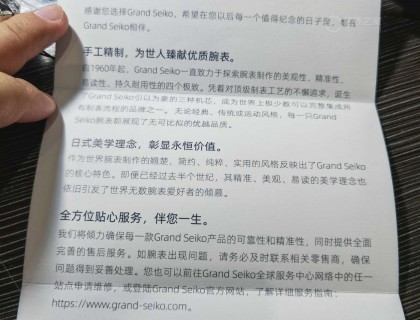 感谢您选择Grand Seiko，希望在您以后每一个值得纪念的日子里，都有
Grand Seiko相伴。
手工精制，为世人臻献优质腕表。
自1960年起，Grand Seiko一直致力于探索腕表制作的美观性、精准性、
易读性、持久耐用性的四个极致。凭着对顶级制表工艺的不懈追求，诞生
了Grand Seiko引以为豪的三种机芯，成为世界上极少数可以完整集成所
有制表流程的品牌之一。无论经典、传统或运动风格，每一只Grand
Seiko腕表都展现了无可比拟的优越品质。
日式美学理念，彰显永恒价值。
作为世界腕表制作的翘楚，简约、纯粹、实用的风格反映出了Grand Seiko
的核心特色。即便已经过去半个世纪，其精准、美观、易读的美学理念也
依旧引发了世界无数腕表爱好者的倾慕。
全方位贴心服务，伴您一生。
我们将倾力确保每一款Grand Seiko产品的可靠性和精准性，同时提供全面
完善的售后服务。如腕表出现问题，请务必及时联系相关零售商，确保
问题得到妥善处理。您也可以前往Grand Seiko全球服务中心网络中的任一
站点申请维修，或登陆Grand Seiko官方网站，了解详细服务指南：
https://www.grand-seiko.com。